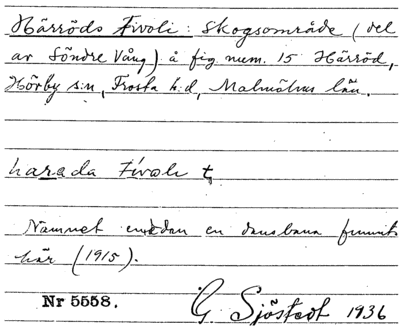 Härröds Tivoli: Skogsområde (del
av Söndre Vång) å fig. num. 15 Härröd,
Hörby s:n, Frosta h:d, Malmöhus län.
harada Tivoli
Namnet emedan en dansbana funnits
här (1915).
Nr 5558.
G Sjöstedt 1936